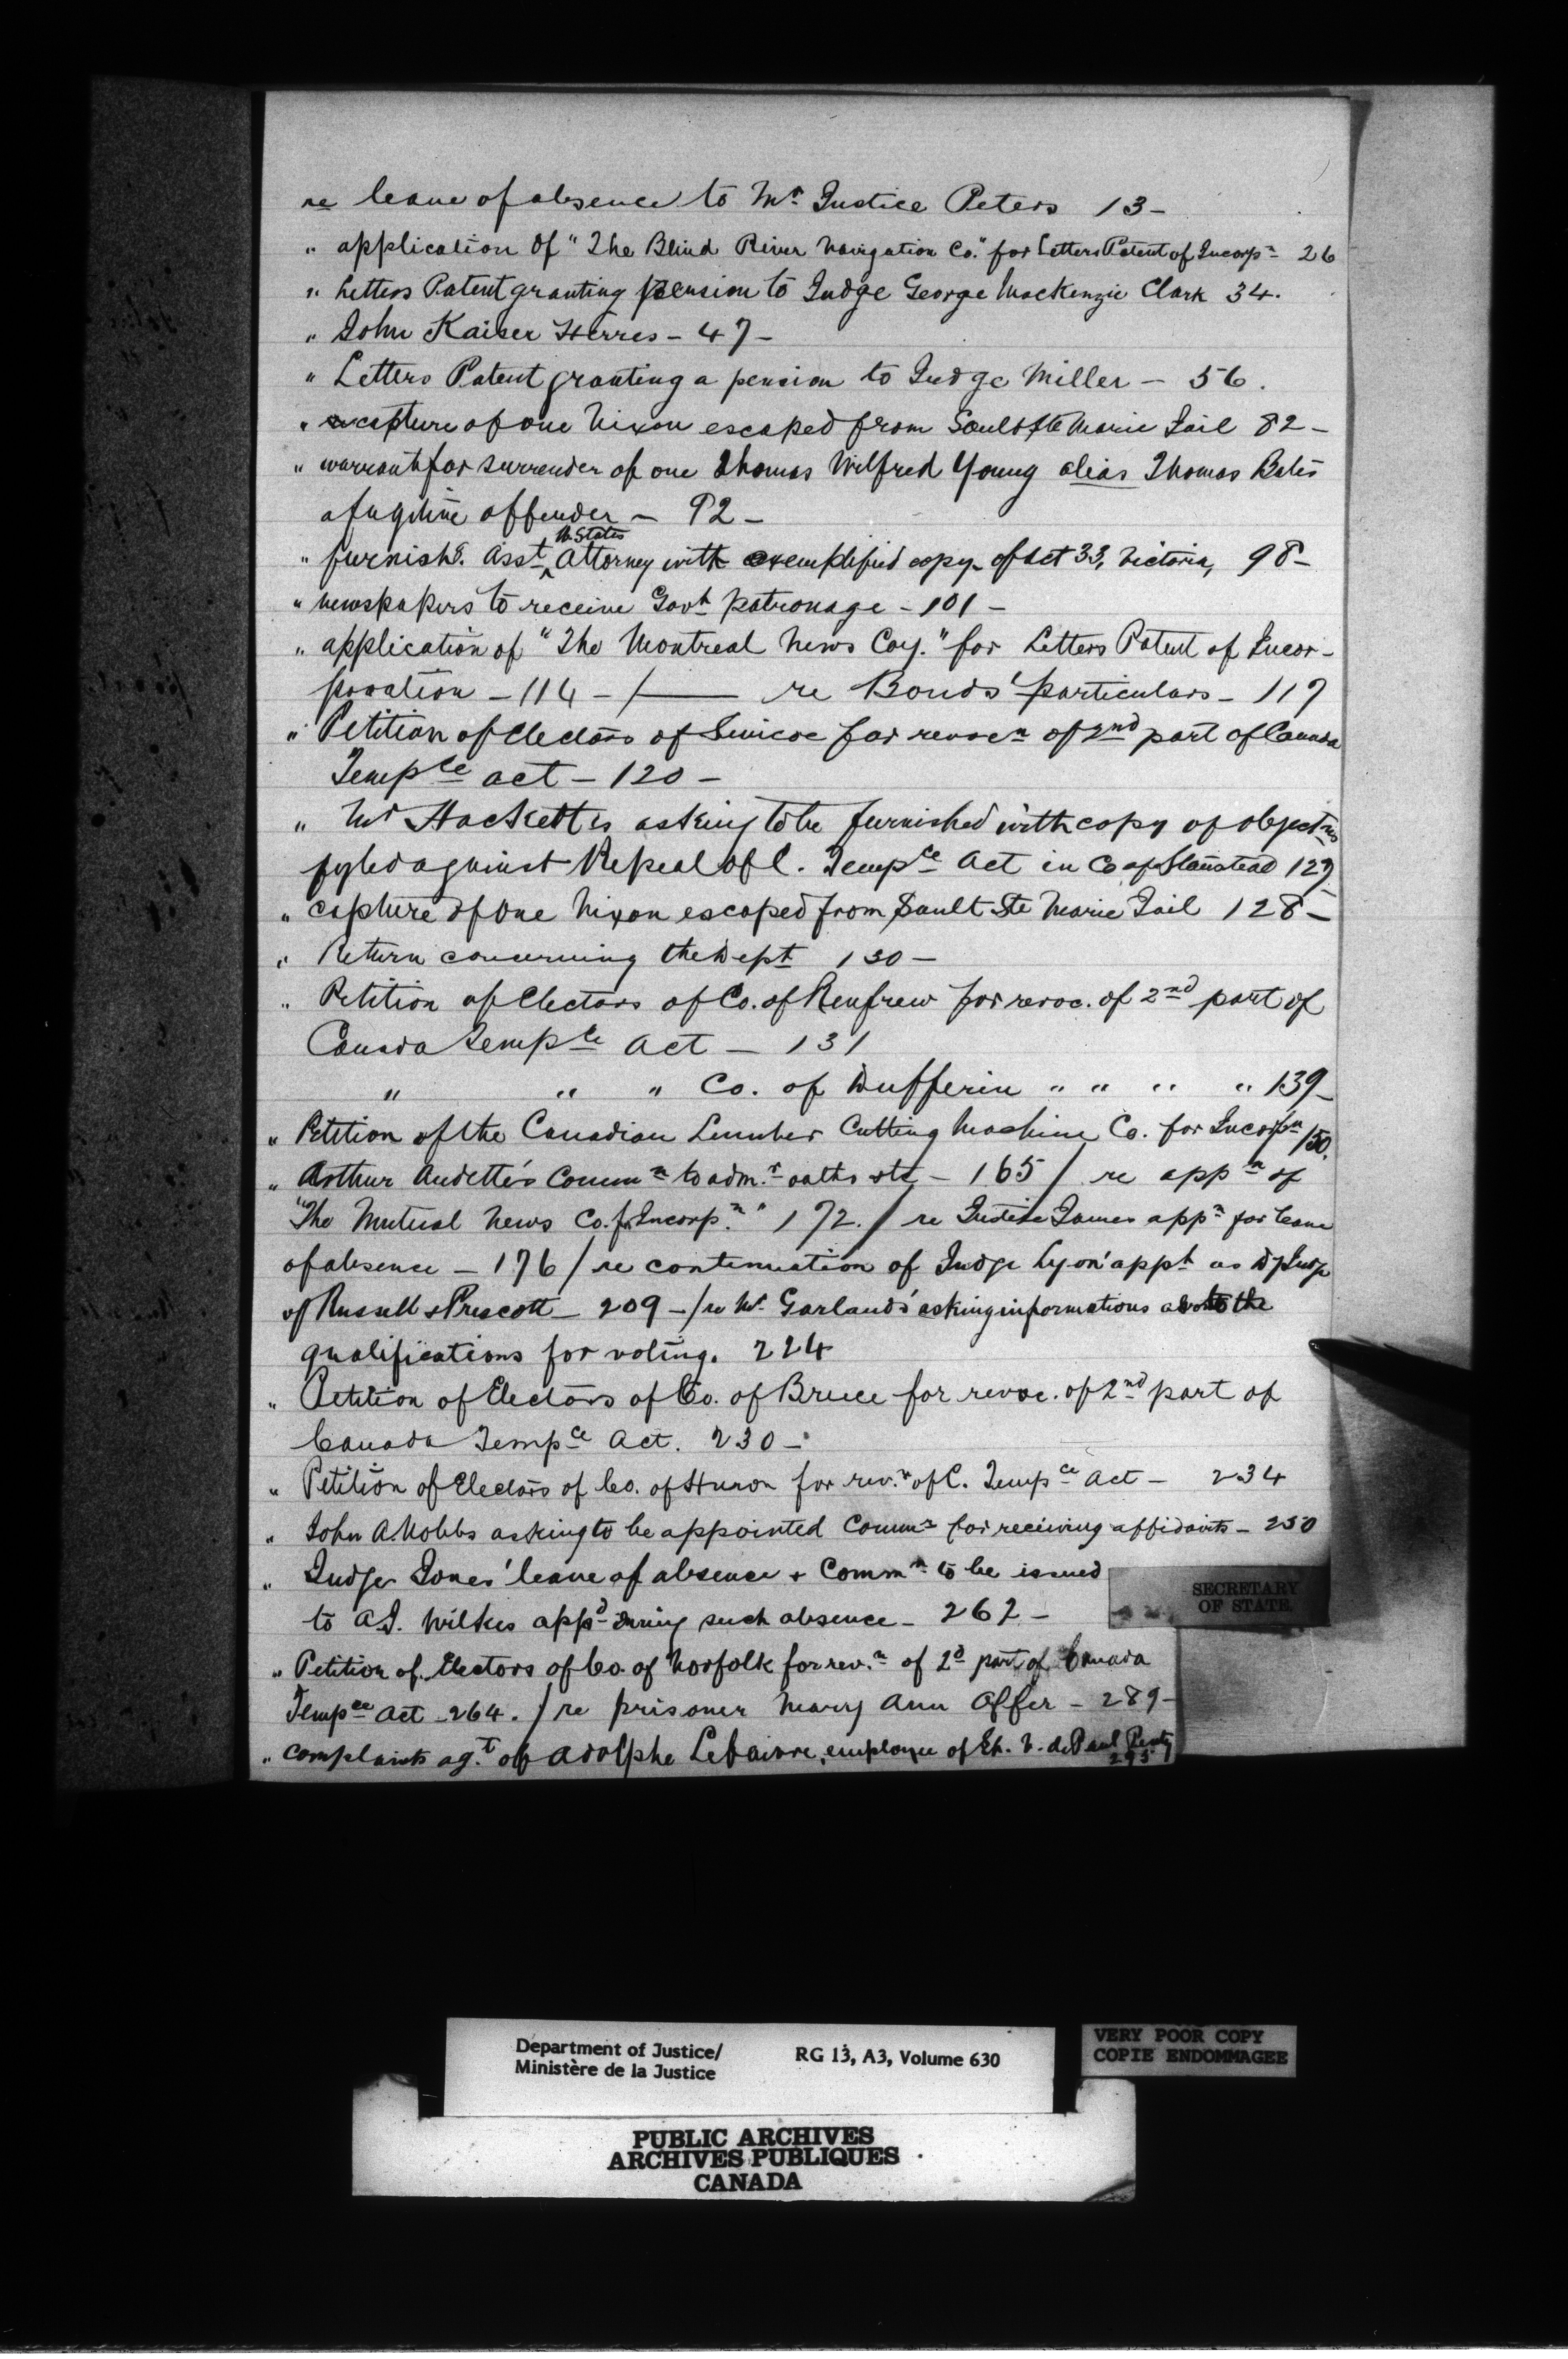 re leave of absence to Mr. Justice Peters 13 -
" application of "The Blind River Navigation Co." for Letters Patent of Incorpn 26
" Letters Patent granting pension to Judge George Mackenzie Clark 34.
" John Kaiser Herres - 47 -
" Letters Patent granting a pension to Judge Miller - 56.
" capture of one Nixon escaped from Sault Ste Marie Jail 82 -
" warrant for surrender of one Thomas Wilfred Young alias Thomas Bates
a fugitive offender - 92 -
U. States
" furnishg. Asst. ^ Attorney with exemplified copy of Act 33, Victoria, 98 -
" newspapers to receive Govt patronage - 101 -
" application of "The Montreal News Coy." for Letters Patent of Incor-
poration - 114 - / re Bonds' particulars - 117
" Petition of Electors of Simcoe for revocn of 2nd part of Canada
Tempce act - 120 -
" Mr Hackett's asking to be furnished with copy of objectns
fyled against Repeal of C. Tempce Act in Co of Stanstead 127
" capture of one Nixon escaped from Sault Ste Marie Jail 128 -
" Return concerning the Dept 130 -
" Petition of Electors of Co. of Renfrew for revoc. of 2nd part of
Canada Tempce Act - 131
" " " Co. of Dufferin " " " " 139 -
" Petition of the Canadian Lumber Cutting Machine Co. for Incorpn 150.
" Arthur Audette's Commn to admr. oaths etc - 165 / re appn of
"The Mutual News Co. f. Incorpn." 172. / re Justice James appn for leave
of absence - 176 / re continuation of Judge Lyon' appt as Dy Judge
of Russell & Prescott - 209 - / re Mr. Garland's asking informations as to the
qualifications for voting. 224
" Petition of Electors of Co. of Bruce for revoc. of 2nd part of
Canada Tempce Act. 230 -
" Petition of Electors of Co. of Huron for rev.n of C. Tempce Act - 234
" John A. Nobbs asking to be appointed Commr for receiving affidavits - 250
" Judge Jones' leave of absence & Commn to be issued
to A.J. Wilkes appd during such absence - 262 -
" Petition of Electors of Co. of Norfolk for rev.n of 2d part of Canada
Tempce Act - 264. / re prisoner Mary Ann Offer - 289 -
" complaints agt. of Adolphe Lefaivre, employee of St. V. de Paul Penty
295
SECRETARY
OF STATE.
Department of Justice/
Ministère de la Justice
RG 13, A3, Volume 630
VERY POOR COPY
COPIE ENDOMMAGEE
PUBLIC ARCHIVES
ARCHIVES PUBLIQUES
CANADA